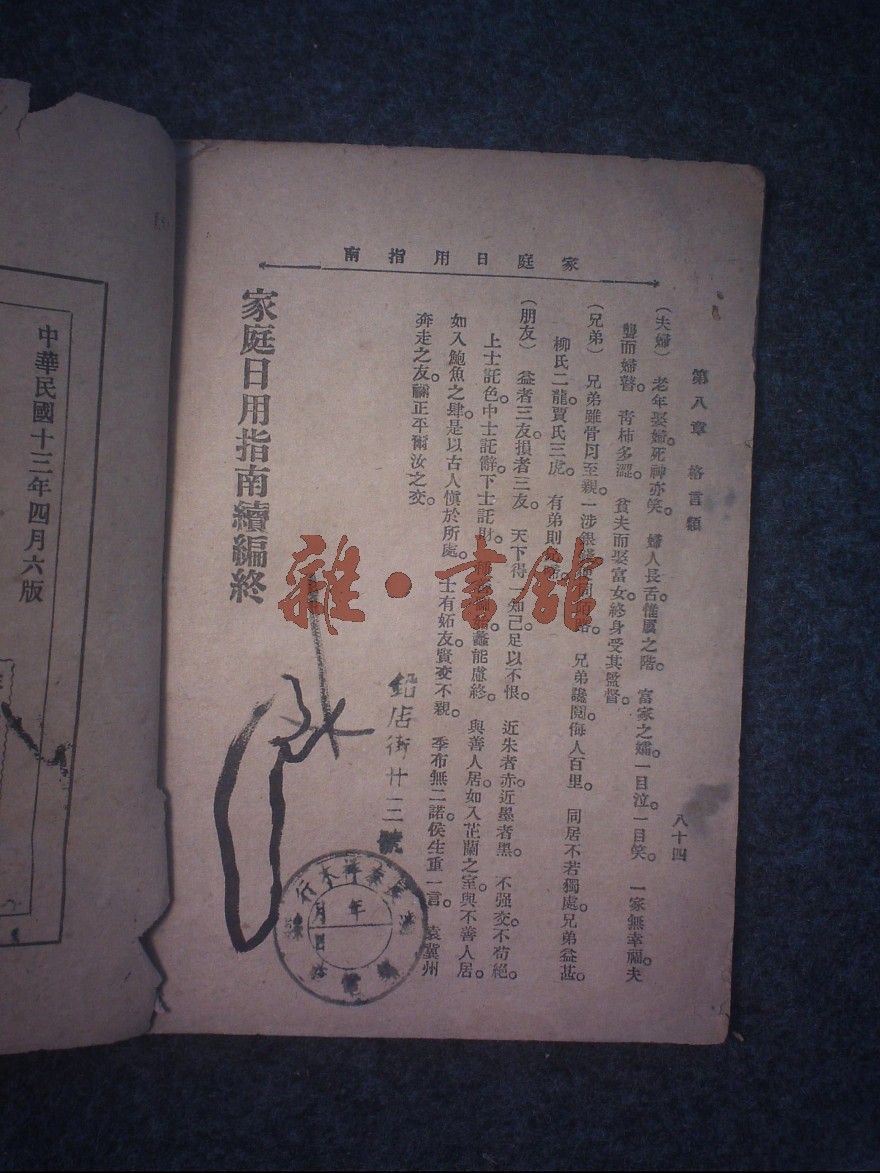 家庭日用指南
第八章　格言類
八十四
(夫婦)　老年娶婦。死神亦笑。　婦人長舌惟厲之階。　富家之孀。一目泣。一目笑。　一家無幸福。夫
聾而婦瞽。　靑柿多澀。　貧夫而娶富女。終身受其監督。
(兄弟)　兄弟雖骨肉至親。一涉銀錢　兄弟讒鬩。侮人百里。　同居不若獨處。兄弟益甚。
柳氏二龍。賈氏三虎。　有弟則
(朋友)　益者三友。損者三友。　天下得一知己。足以不恨。　近朱者赤。近墨者黑。　不强交。不苟絕。
上士託色。中士託辭。下士託財。　能慮終。　與善人居。如入芷蘭之室。與不善人居。
如入鮑魚之肆。是以古人愼於所處。　士有妬友。賢交不親。　季布無二諾。侯生重一言。　袁冀州
奔走之友。禰正平爾汝之交。
家庭日用指南續編終
店街廿三號
年
月
日
中華民國十三年四月六版
雜·書館